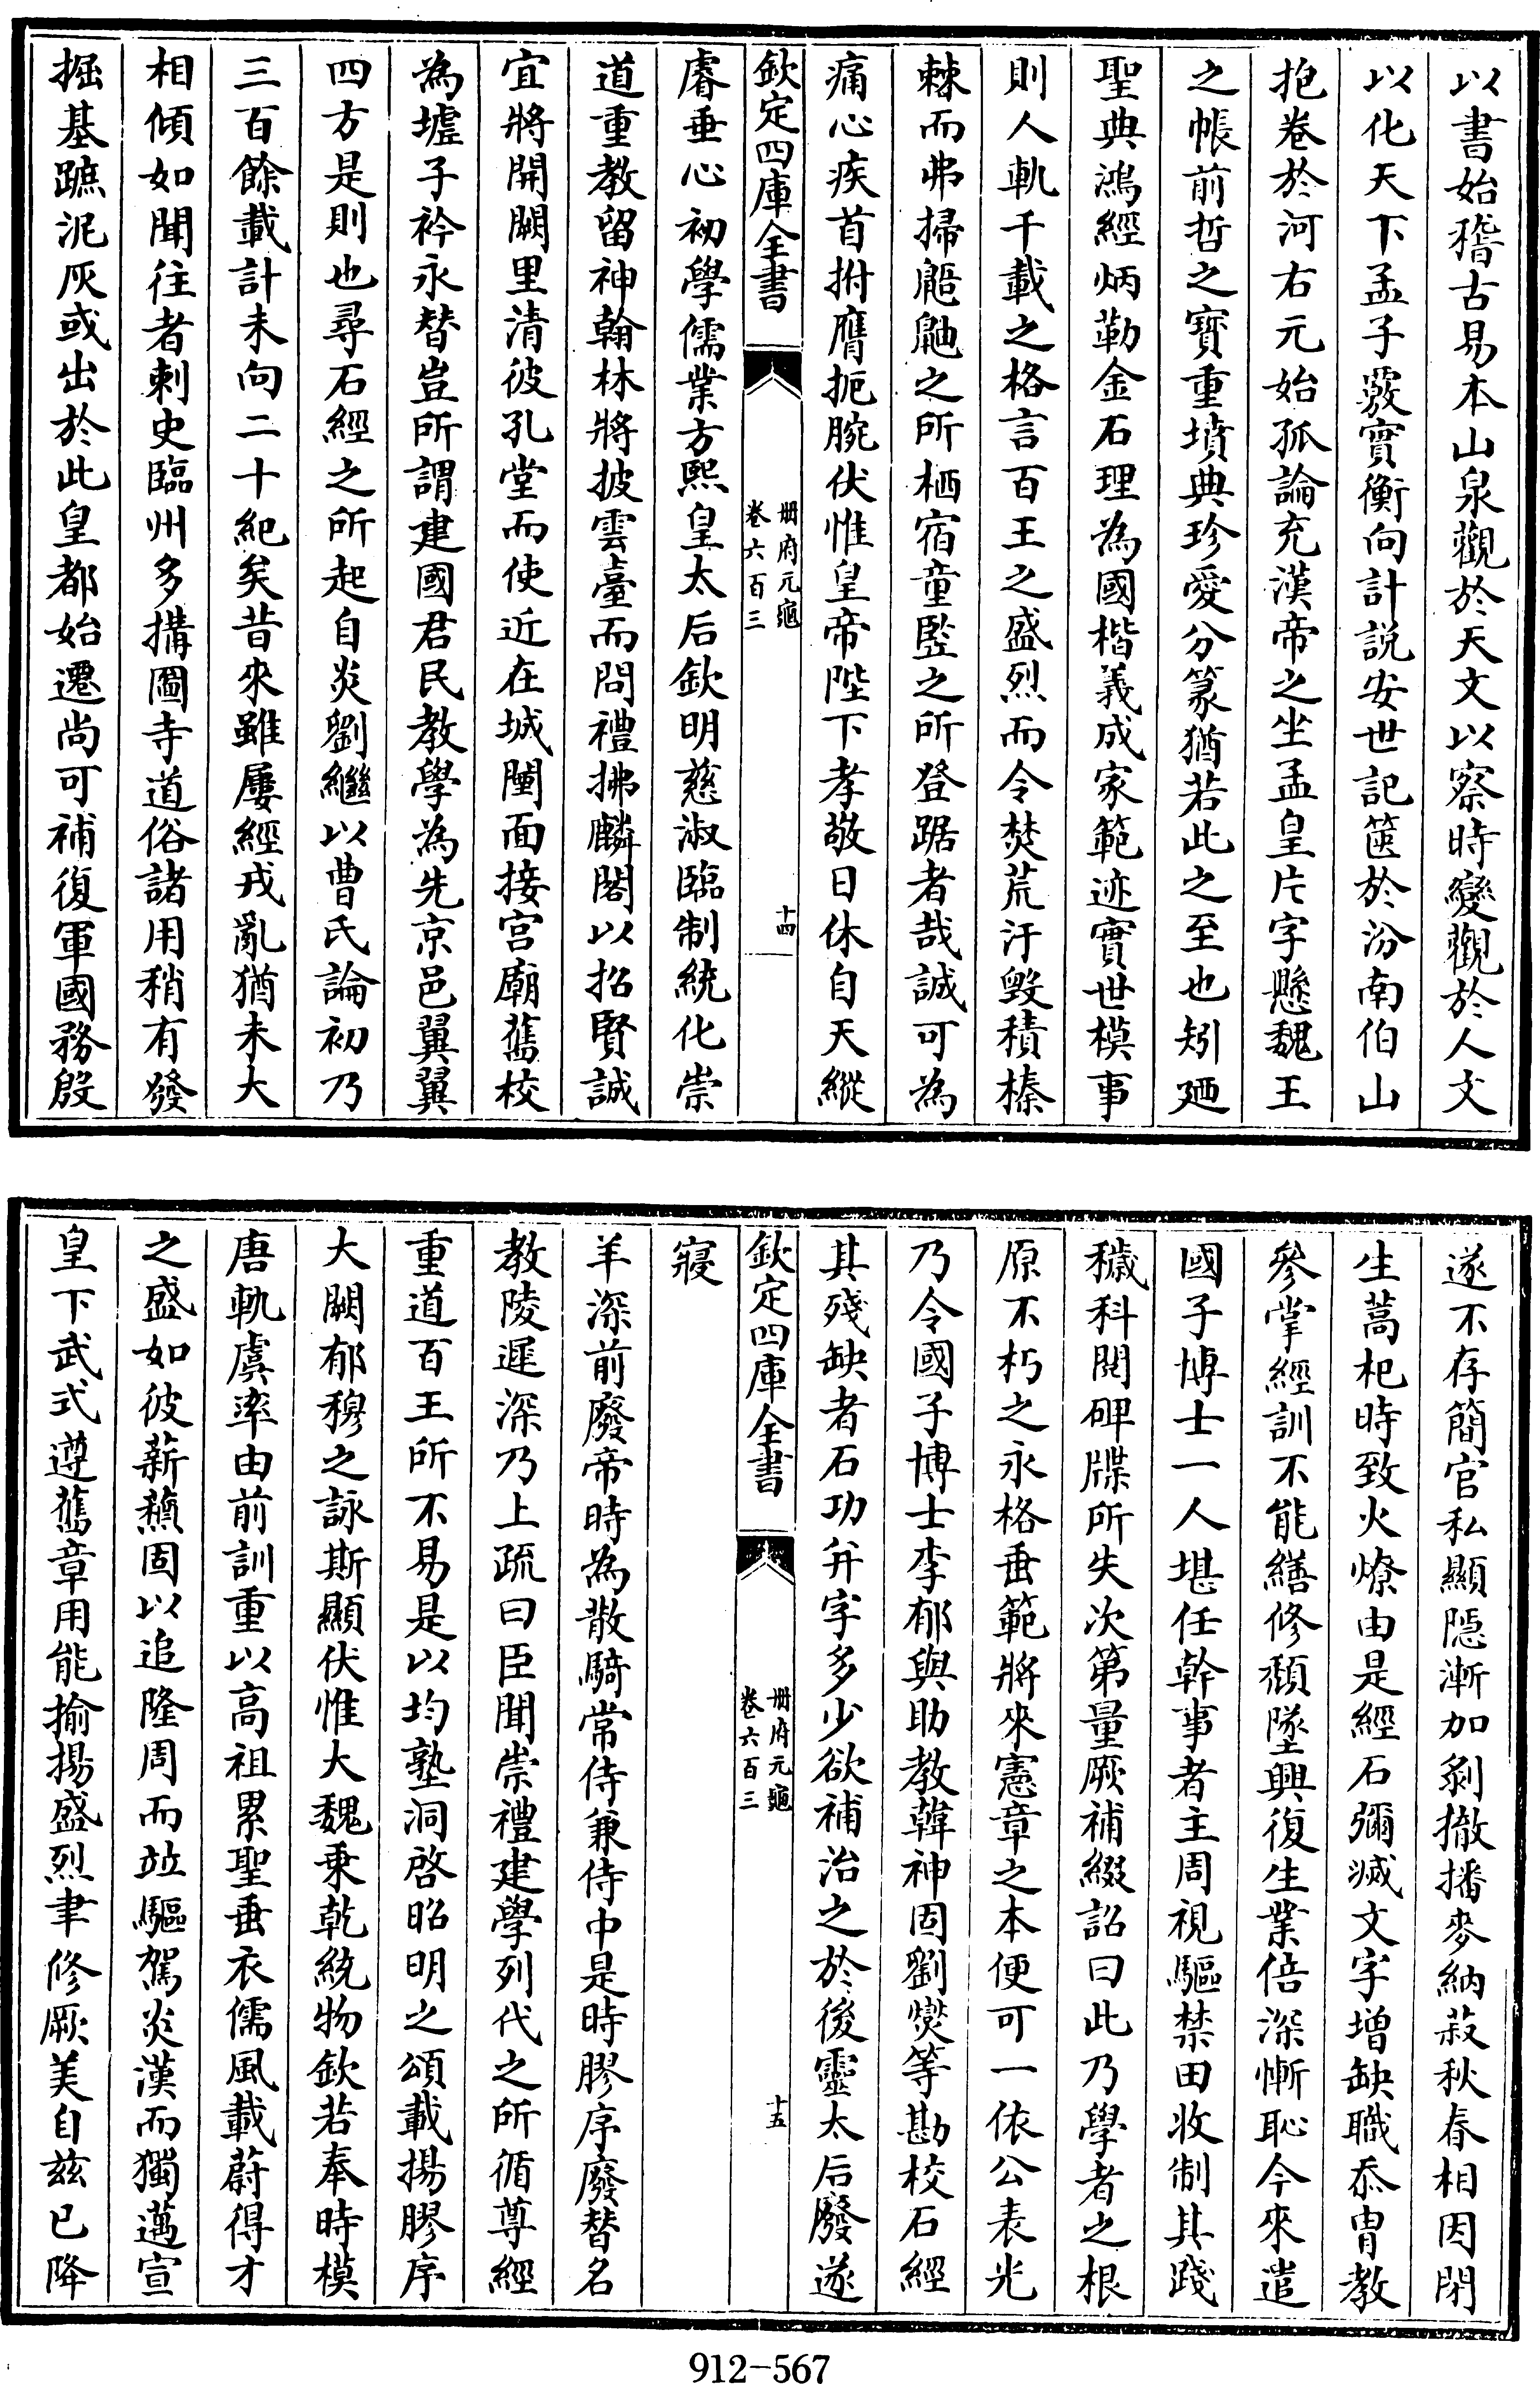 以書始稽古易本山泉觀於天文以察時變觀於人文
以化天下孟子覈實衡向計說安世記篋於汾南伯山
抱卷於河右元始孤論充漢帝之坐孟皇片字懸魏王
之帳前哲之寶重墳典珍愛分篆猶若此之至也矧廼
聖典鴻經炳勒金石理為國楷義成家範迹實世模事
則人軌千載之格言百王之盛烈而令焚荒汙毀積榛
棘而弗掃鼯鼬之所栖宿童豎之所登踞者哉誠可為
痛心疾首拊膺扼腕伏惟皇帝陛下孝敬日休自天縱
欽定四庫全書
冊府元龜
卷六百三
十四
睿垂心初學儒業方熙皇太后欽明慈淑臨制統化崇
道重教留神翰林將披雲臺而問禮拂麟閣以招賢誠
宜將開闕里清彼孔堂而使近在城闉面接宫廟舊校
為墟子衿永替豈所謂建國君民教學為先京邑翼翼
四方是則也尋石經之所起自炎劉繼以曹氏論初乃
三百餘載計未向二十紀矣昔來雖屢經戎亂猶未大
相傾如聞往者刺史臨州多搆圖寺道俗諸用稍有發
掘基蹠泥灰或出於此皇都始遷尚可補復軍國務殷
遂不存簡官私顯隱漸加剝撤播麥納菽秋春相因閉
生蒿杞時致火燎由是經石彌減文字增缺職忝胄教
參掌經訓不能繕修頹墜興復生業倍深慚恥今來遣
國子博士一人堪任幹事者主周視驅禁田收制其踐
穢科閱碑牒所失次第量厥補綴詔曰此乃學者之根
原不朽之永格垂範將來憲章之本便可一依公表光
乃令國子博士李郁與助教韓神固劉燮等勘校石經
其殘缺者石功并字多少欲補治之於後靈太后廢遂
欽定四庫全書
冊府元龜
卷六百三
十五
寢
羊深前廢帝時為散騎常侍兼侍中是時膠序廢替名
教陵遲深乃上疏曰臣聞崇禮建學列代之所循尊經
重道百王所不易是以均塾洞啓昭明之頌載揚膠序
大闕郁穆之詠斯顯伏惟大魏乘乾統物欽若奉時模
唐軌虞率由前訓重以高祖累聖垂衣儒風載蔚得才
之盛如彼薪蘓固以追隆周而竝驅駕炎漢而獨邁宣
皇下武式遵舊章用能揄揚盛烈聿修厥美自兹已降
912-567